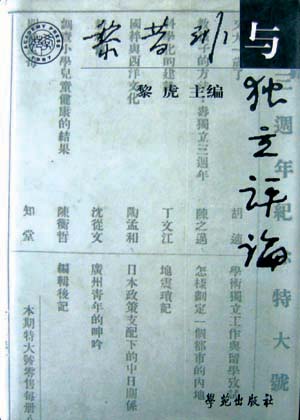 黎昔非
与
独立评论
黎虎 主编
三週年紀
特大號
胡適
學術獨立工作與留學考
壽獨立三週年
陳之邁
怎樣劃定一個都市的內地
科學化的建
丁文江
地震瑣記
國粹與西洋文化
陶孟和
日本政策支配下的中日關係
沈從文
廣州青年的呻吟
小學兒童健康的結果
陳衡哲
編輯後記
知堂
本期特大號零售每册
學苑出版社